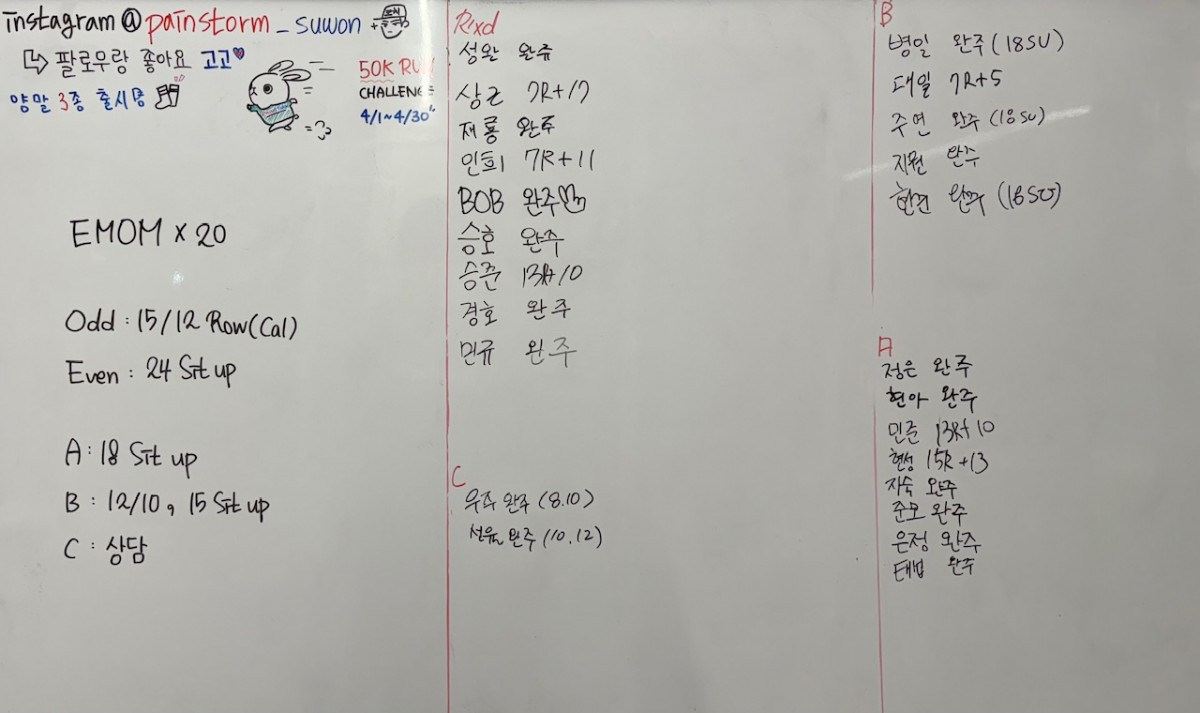 instagram@painstorm_suwon
팔로우랑 좋아요 고고
양말 3종 출시중
50K RUN
CHALLENGE
4/1~4/30
EMOM x 20
Odd : 15/12 Row(Cal)
Even : 24 Sit up
A : 18 Sit up
B : 12/10, 15 Sit up
C : 상담
Rxd
성완 완주
상근 7R+17
재룡 완주
인희 7R+11
BOB 완주
승호 완주
승준 13R+10
경호 완주
민규 완주
C
우주 완주 (8.10)
완주 (10.12)
B
병일 완주 (18SU)
대일 7R+5
주연 완주 (18SU)
지원 완주
완주 (18SU)
A
정은 완주
현아 완주
민준 13R+10
현성 15R+13
지숙 완주
준모 완주
은정 완주
태섭 완주